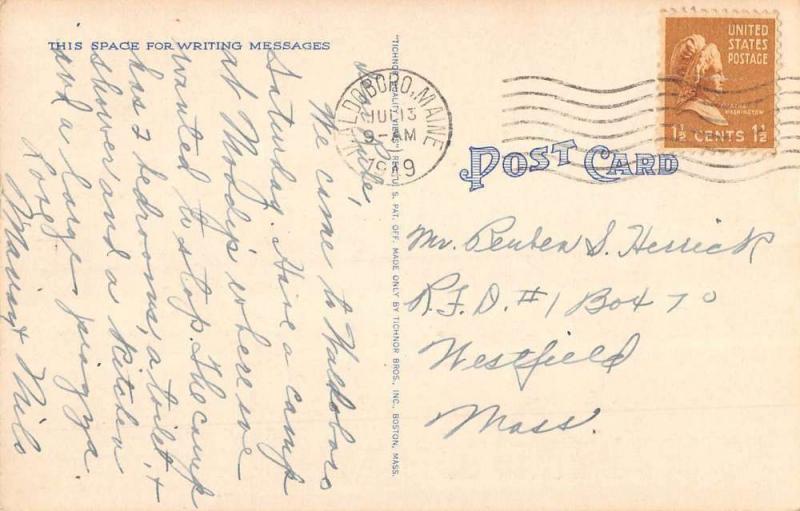 THIS SPACE FOR WRITING MESSAGES
We came to Waldoboro
Saturday. Have a camp
at Moody's where we
wanted to stop. The camp
has 2 bedrooms, a toilet, +
shower and a kitchen
and a large piazza.
Love
Marion + Milo
"TICHNOR QUALITY VIEWS" REG. U. S. PAT. OFF. MADE ONLY BY TICHNOR BROS., INC., BOSTON, MASS.
WALDOBORO, MAINE
JUL 13
9-AM
UNITED
STATES
POSTAGE
MARTHA
WASHINGTON
1½ CENTS 1½
POST CARD
Mr. Reuben S. Herrick
R.F.D. #1 Box 70
Westfield
Mass.